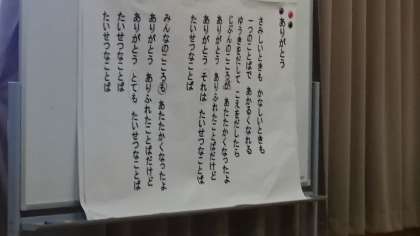 ありがとう
さみしいときも かなしいときも
一つのことばで あかるくなれる
ゆうきをだして こえをだしたら
じぶんのこころが あたたかくなったよ
ありがとう ありふれたことばだけど
ありがとう それは たいせつなことば
たいせつなことば
みんなのこころも あたたかくなったよ
ありがとう ありふれたことばだけど
ありがとう とても たいせつなことば
たいせつなことば
たいせつなことば